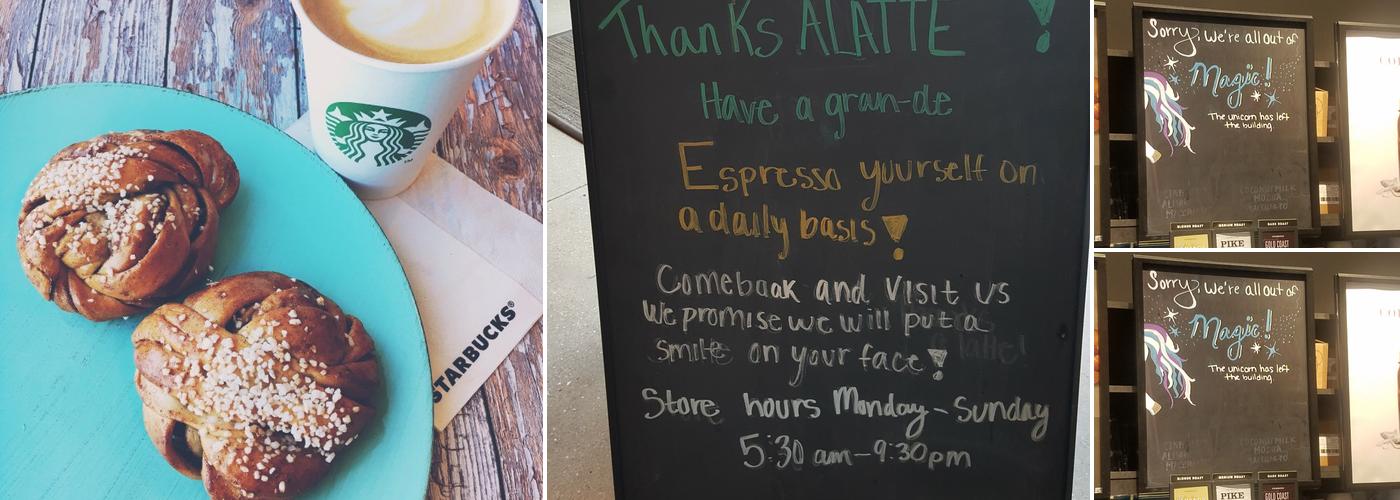 STARBUCKS®
Thanks ALATTE !
Have a gran-de
Espresso yourself on
a daily basis!
Comebaak and Visit us
We promise we will put a
smile on your face!
Store hours Monday-Sunday
5:30 am-9:30pm
Sorry, We're all out of
Magic!
The unicorn has left
the building.
BLONDE ROAST MEDIUM ROAST DARK ROAST
PIKE GOLD COAST
Sorry, We're all out of
Magic!
The unicorn has left
the building.
BLONDE ROAST MEDIUM ROAST DARK ROAST
PIKE GOLD COAST